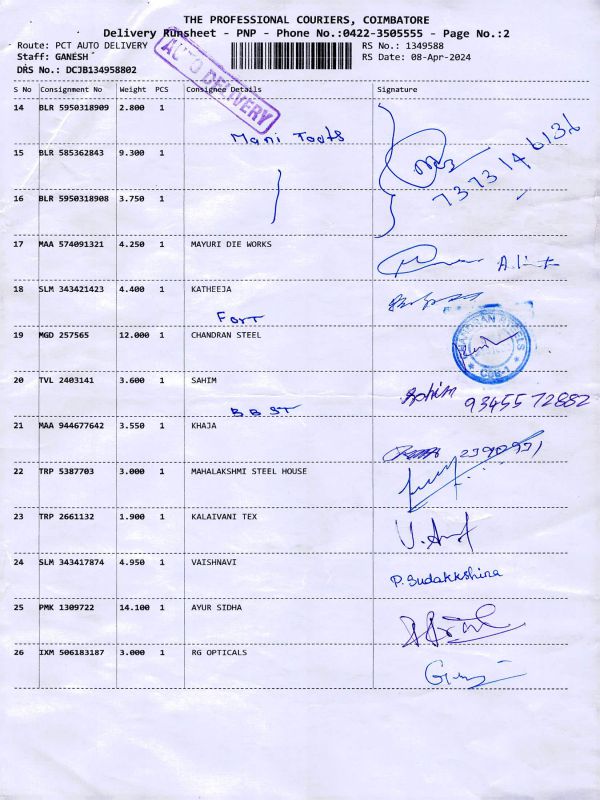 THE PROFESSIONAL COURIERS, COIMBATORE
Delivery Runsheet - PNP - Phone No.:0422-3505555 - Page No.:2
Route: PCT AUTO DELIVERY RS No.: 1349588
Staff: GANESH RS Date: 08-Apr-2024
DRS No.: DCJB134958802
AUTO DELIVERY
S No Consignment No Weight PCS Consignee Details Signature
14 BLR 5950318909 2.800 1
Mani Tools
15 BLR 585362843 9.300 1
7373146136
16 BLR 5950318908 3.750 1
17 MAA 574091321 4.250 1 MAYURI DIE WORKS
18 SLM 343421423 4.400 1 KATHEEJA
Fort
19 MGD 257565 12.000 1 CHANDRAN STEEL
CHANDRAN STEELS
CBE-1
20 TVL 2403141 3.600 1 SAHIM
9345572882
BBST
21 MAA 944677642 3.550 1 KHAJA
22 TRP 5387703 3.000 1 MAHALAKSHMI STEEL HOUSE
23 TRP 2661132 1.900 1 KALAIVANI TEX
24 SLM 343417874 4.950 1 VAISHNAVI
P. Sudakkshina
25 PMK 1309722 14.100 1 AYUR SIDHA
26 IXM 506183187 3.000 1 RG OPTICALS